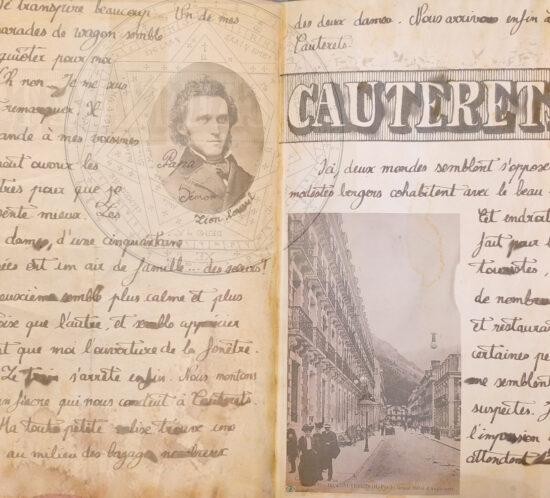 Je transpire beaucoup... Un de mes
camarades de wagon semble
inquiéter pour moi
Oh non... Je me suis
remarquer. Il
ande à mes voisines
les
très pour que je
sente mieux. Les
dames, d'une cinquantaine
ées ont un air de famille... des sœurs!
deuxième semble plus calme et plus
oise que l'autre, et semble apprécier
nt que moi l'ouverture de la fenêtre.
Le train s'arrête enfin. Nous montons
un fiacre qui nous conduit à Cauterets.
Ma toute petite valise trouve une
au milieu des bagages nombreux
Papa
Démon
des deux dames. Nous arrivons enfin à
Cauterets.
CAUTERETS
Ici, deux mondes semblent s'oppose
modestes bergers cohabitent avec le beau
Cet endroit
fait pour l
touristes,
de nombre
et restaura
certaines pe
me semblent
suspectes. J
l'impression
attendent